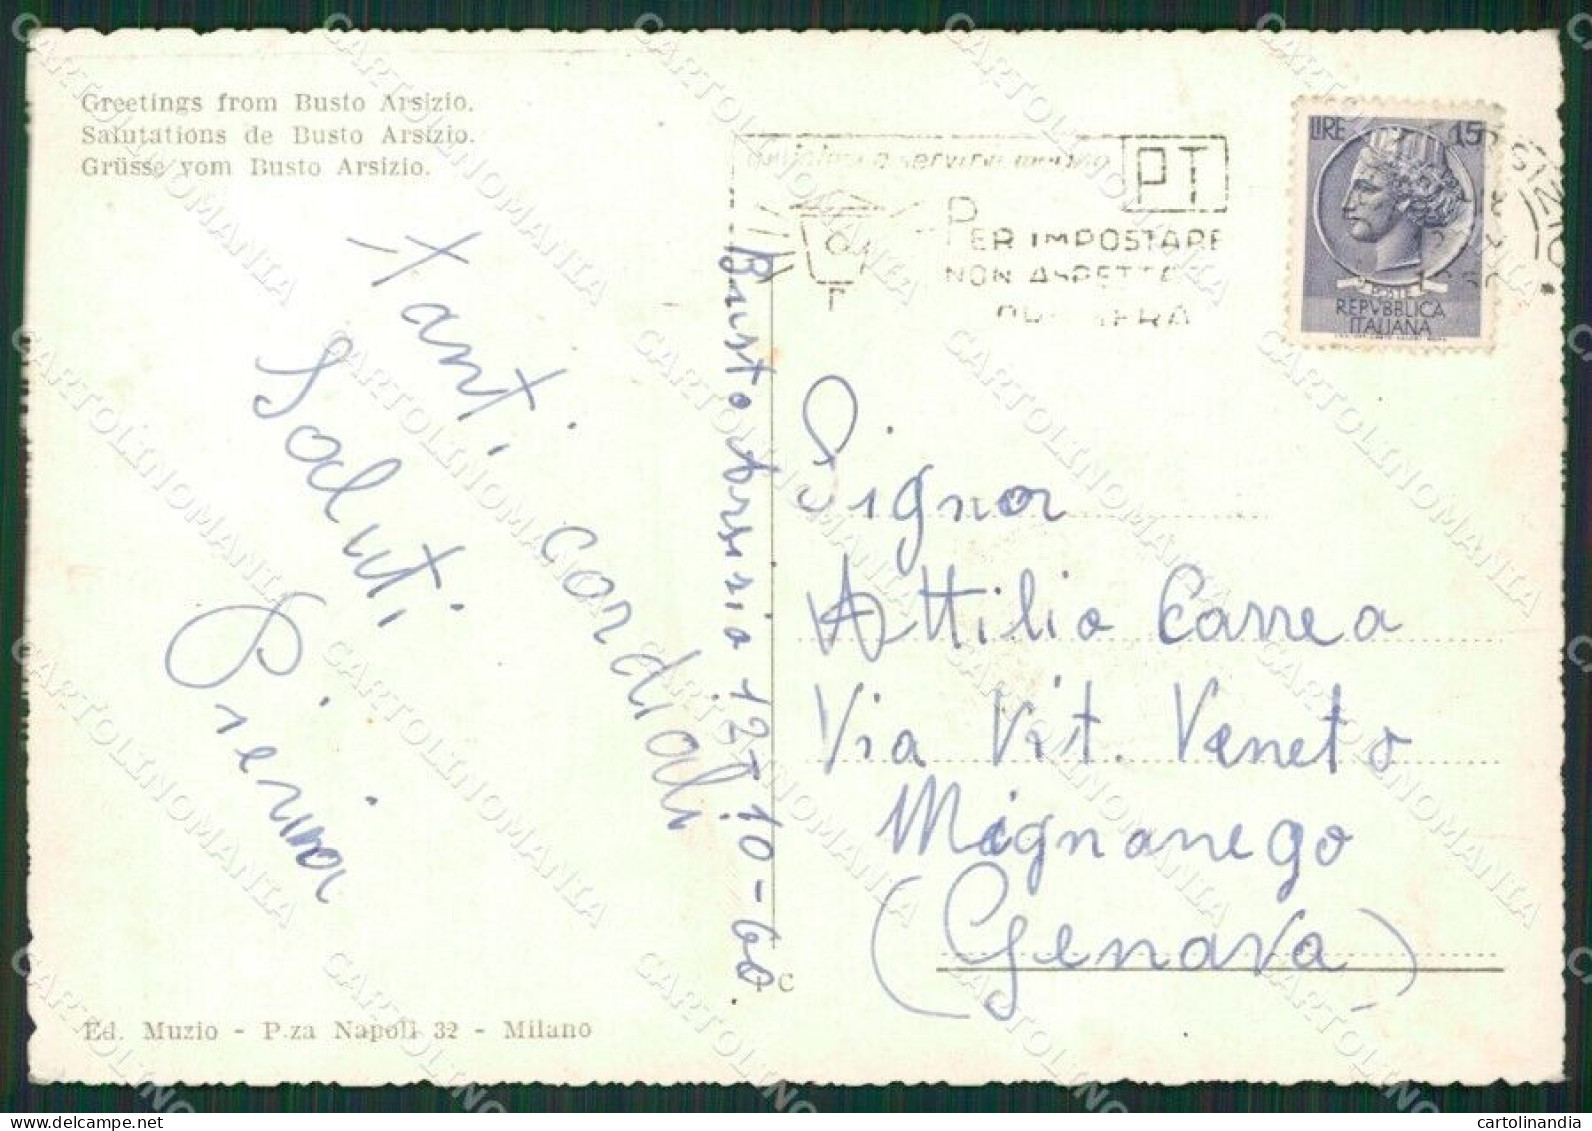 Greetings from Busto Arsizio.
Salutations de Busto Arsizio.
Grüsse vom Busto Arsizio.
PT
PER IMPOSTARE
NON ASPETTA
SERA
LIRE 15
REPVBBLICA
ITALIANA
Tanti cordiali
Saluti
Pierina
Busto Arsisio 12-10-60
Signor
Attilio Carrea
Via Vit. Veneto
Mignanego
(Genova)
Ed. Muzio - P.za Napoli 32 - Milano
CARTOLINOMANIA
www.delcampe.net
cartolinandia